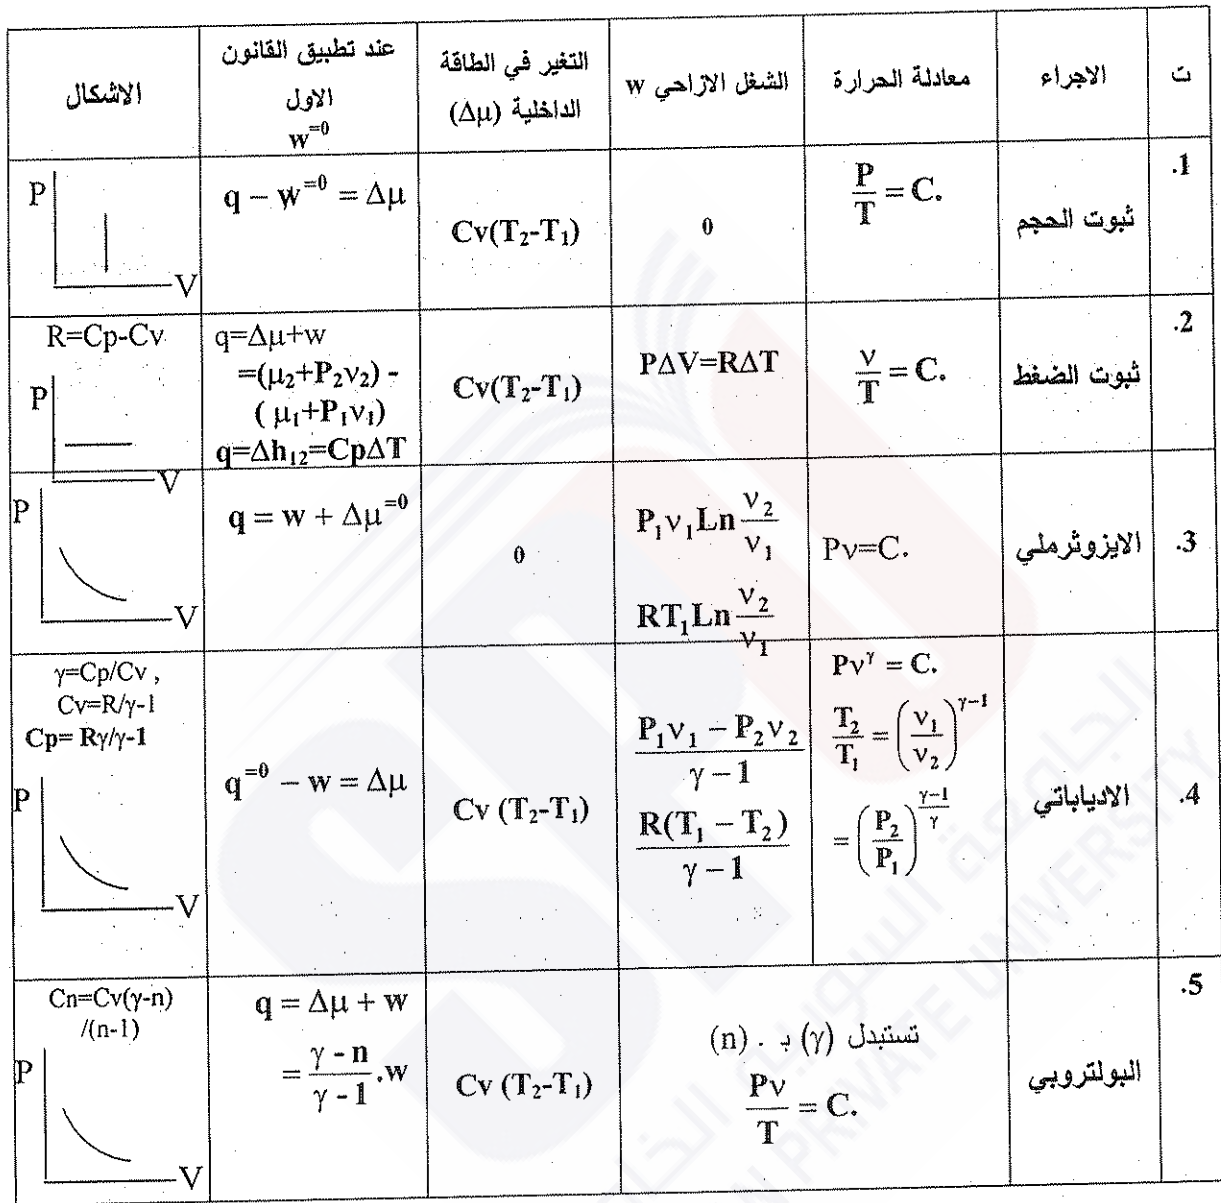 ت
الاجراء
معادلة الحرارة
الشغل الازاحي w
التغير في الطاقة
الداخلية (Δμ)
عند تطبيق القانون
الاول
w⁼⁰
الاشكال
.1
ثبوت الحجم
P/T = C.
0
Cv(T₂-T₁)
q – w⁼⁰ = Δμ
P
V
.2
ثبوت الضغط
ν/T = C.
PΔV=RΔT
Cv(T₂-T₁)
q=Δμ+w
=(μ₂+P₂ν₂) -
( μ₁+P₁ν₁)
q=Δh₁₂=CpΔT
R=Cp-Cv
P
V
.3
الايزوثرملي
Pν=C.
P₁ν₁Ln ν₂/ν₁
RT₁Ln ν₂/ν₁
0
q = w + Δμ⁼⁰
P
V
.4
الادياباتي
Pν^γ = C.
T₂/T₁ = (ν₁/ν₂)^(γ−1)
= (P₂/P₁)^((γ−1)/γ)
(P₁ν₁ – P₂ν₂)/(γ – 1)
R(T₁ – T₂)/(γ – 1)
Cv (T₂-T₁)
q⁼⁰ – w = Δμ
γ=Cp/Cv ,
Cv=R/γ-1
Cp= Rγ/γ-1
P
V
.5
البولتروبي
تستبدل (γ) بـ . (n)
Pν/T = C.
Cv (T₂-T₁)
q = Δμ + w
= (γ - n)/(γ - 1) .w
Cn=Cv(γ-n)
/(n-1)
P
V